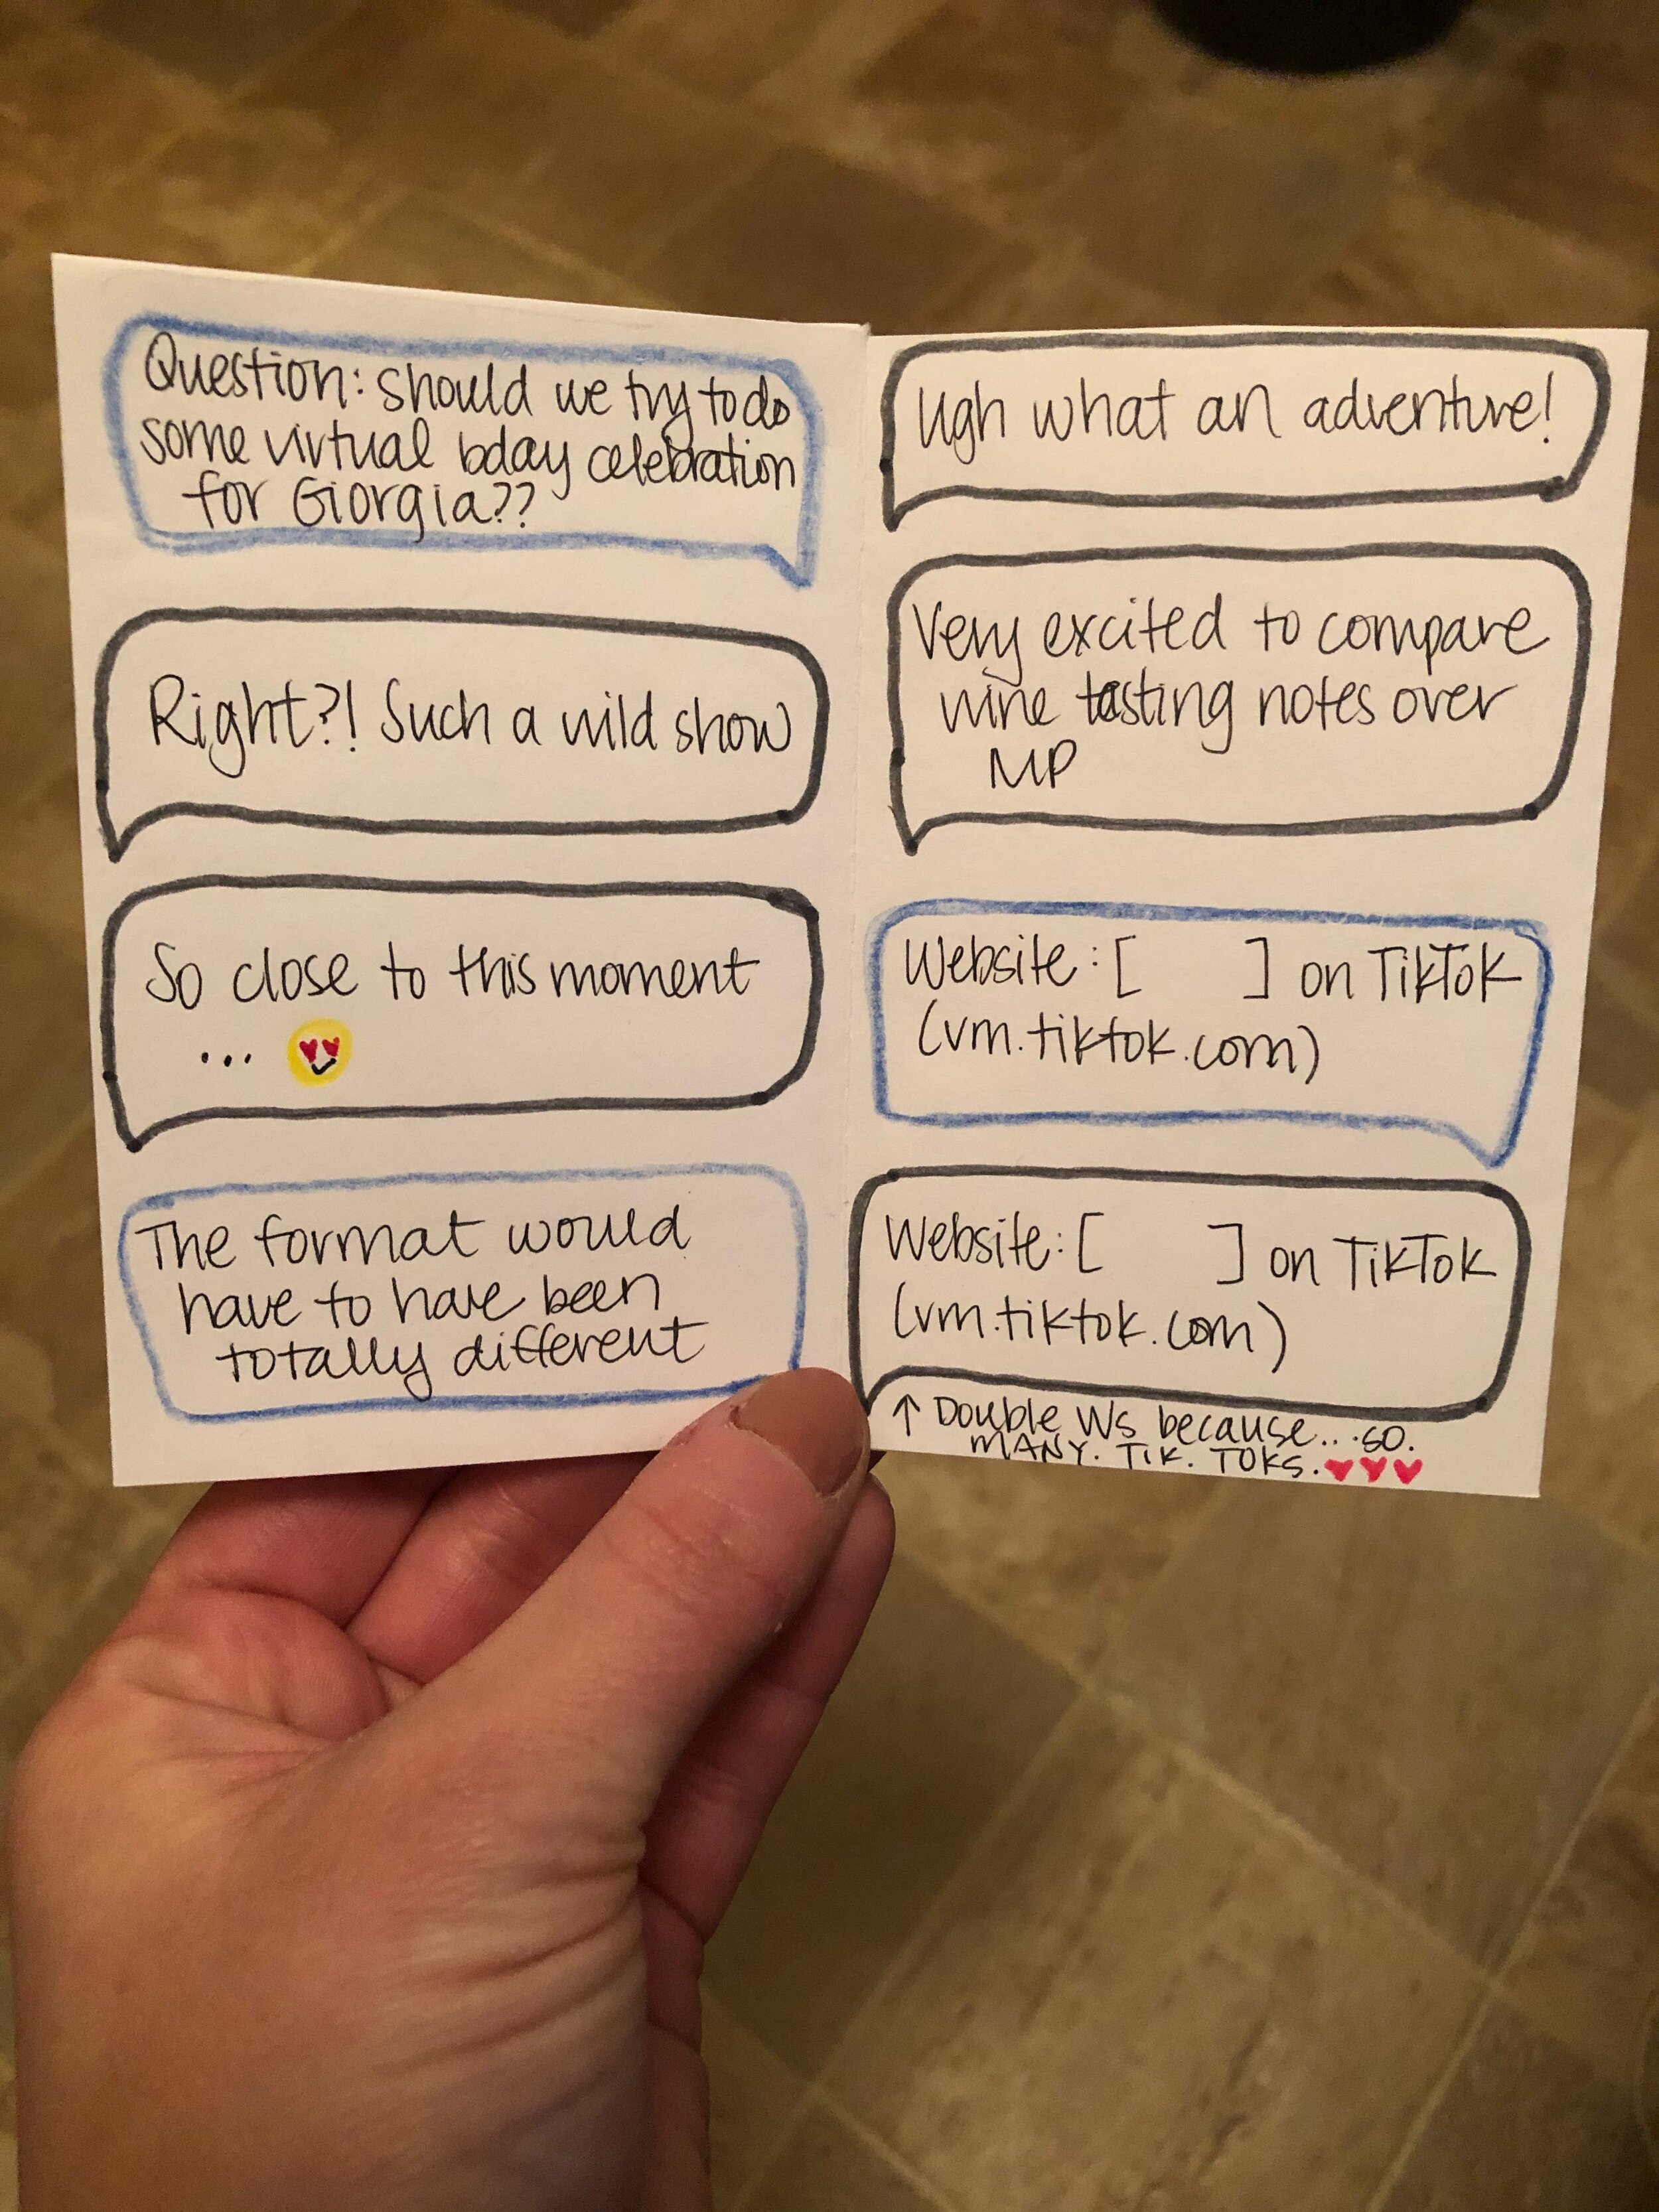 Question: should we try to do
some virtual bday celebration
for Giorgia??
Right?! Such a wild show
So close to this moment
... 😍
The format would
have to have been
totally different
Ugh what an adventure!
Very excited to compare
wine tasting notes over
MP
Website: [ ] on TikTok
(vm.tiktok.com)
Website: [ ] on TikTok
(vm.tiktok.com)
↑ Double Ws because... so.
MANY. TIK. TOKS. ♥♥♥